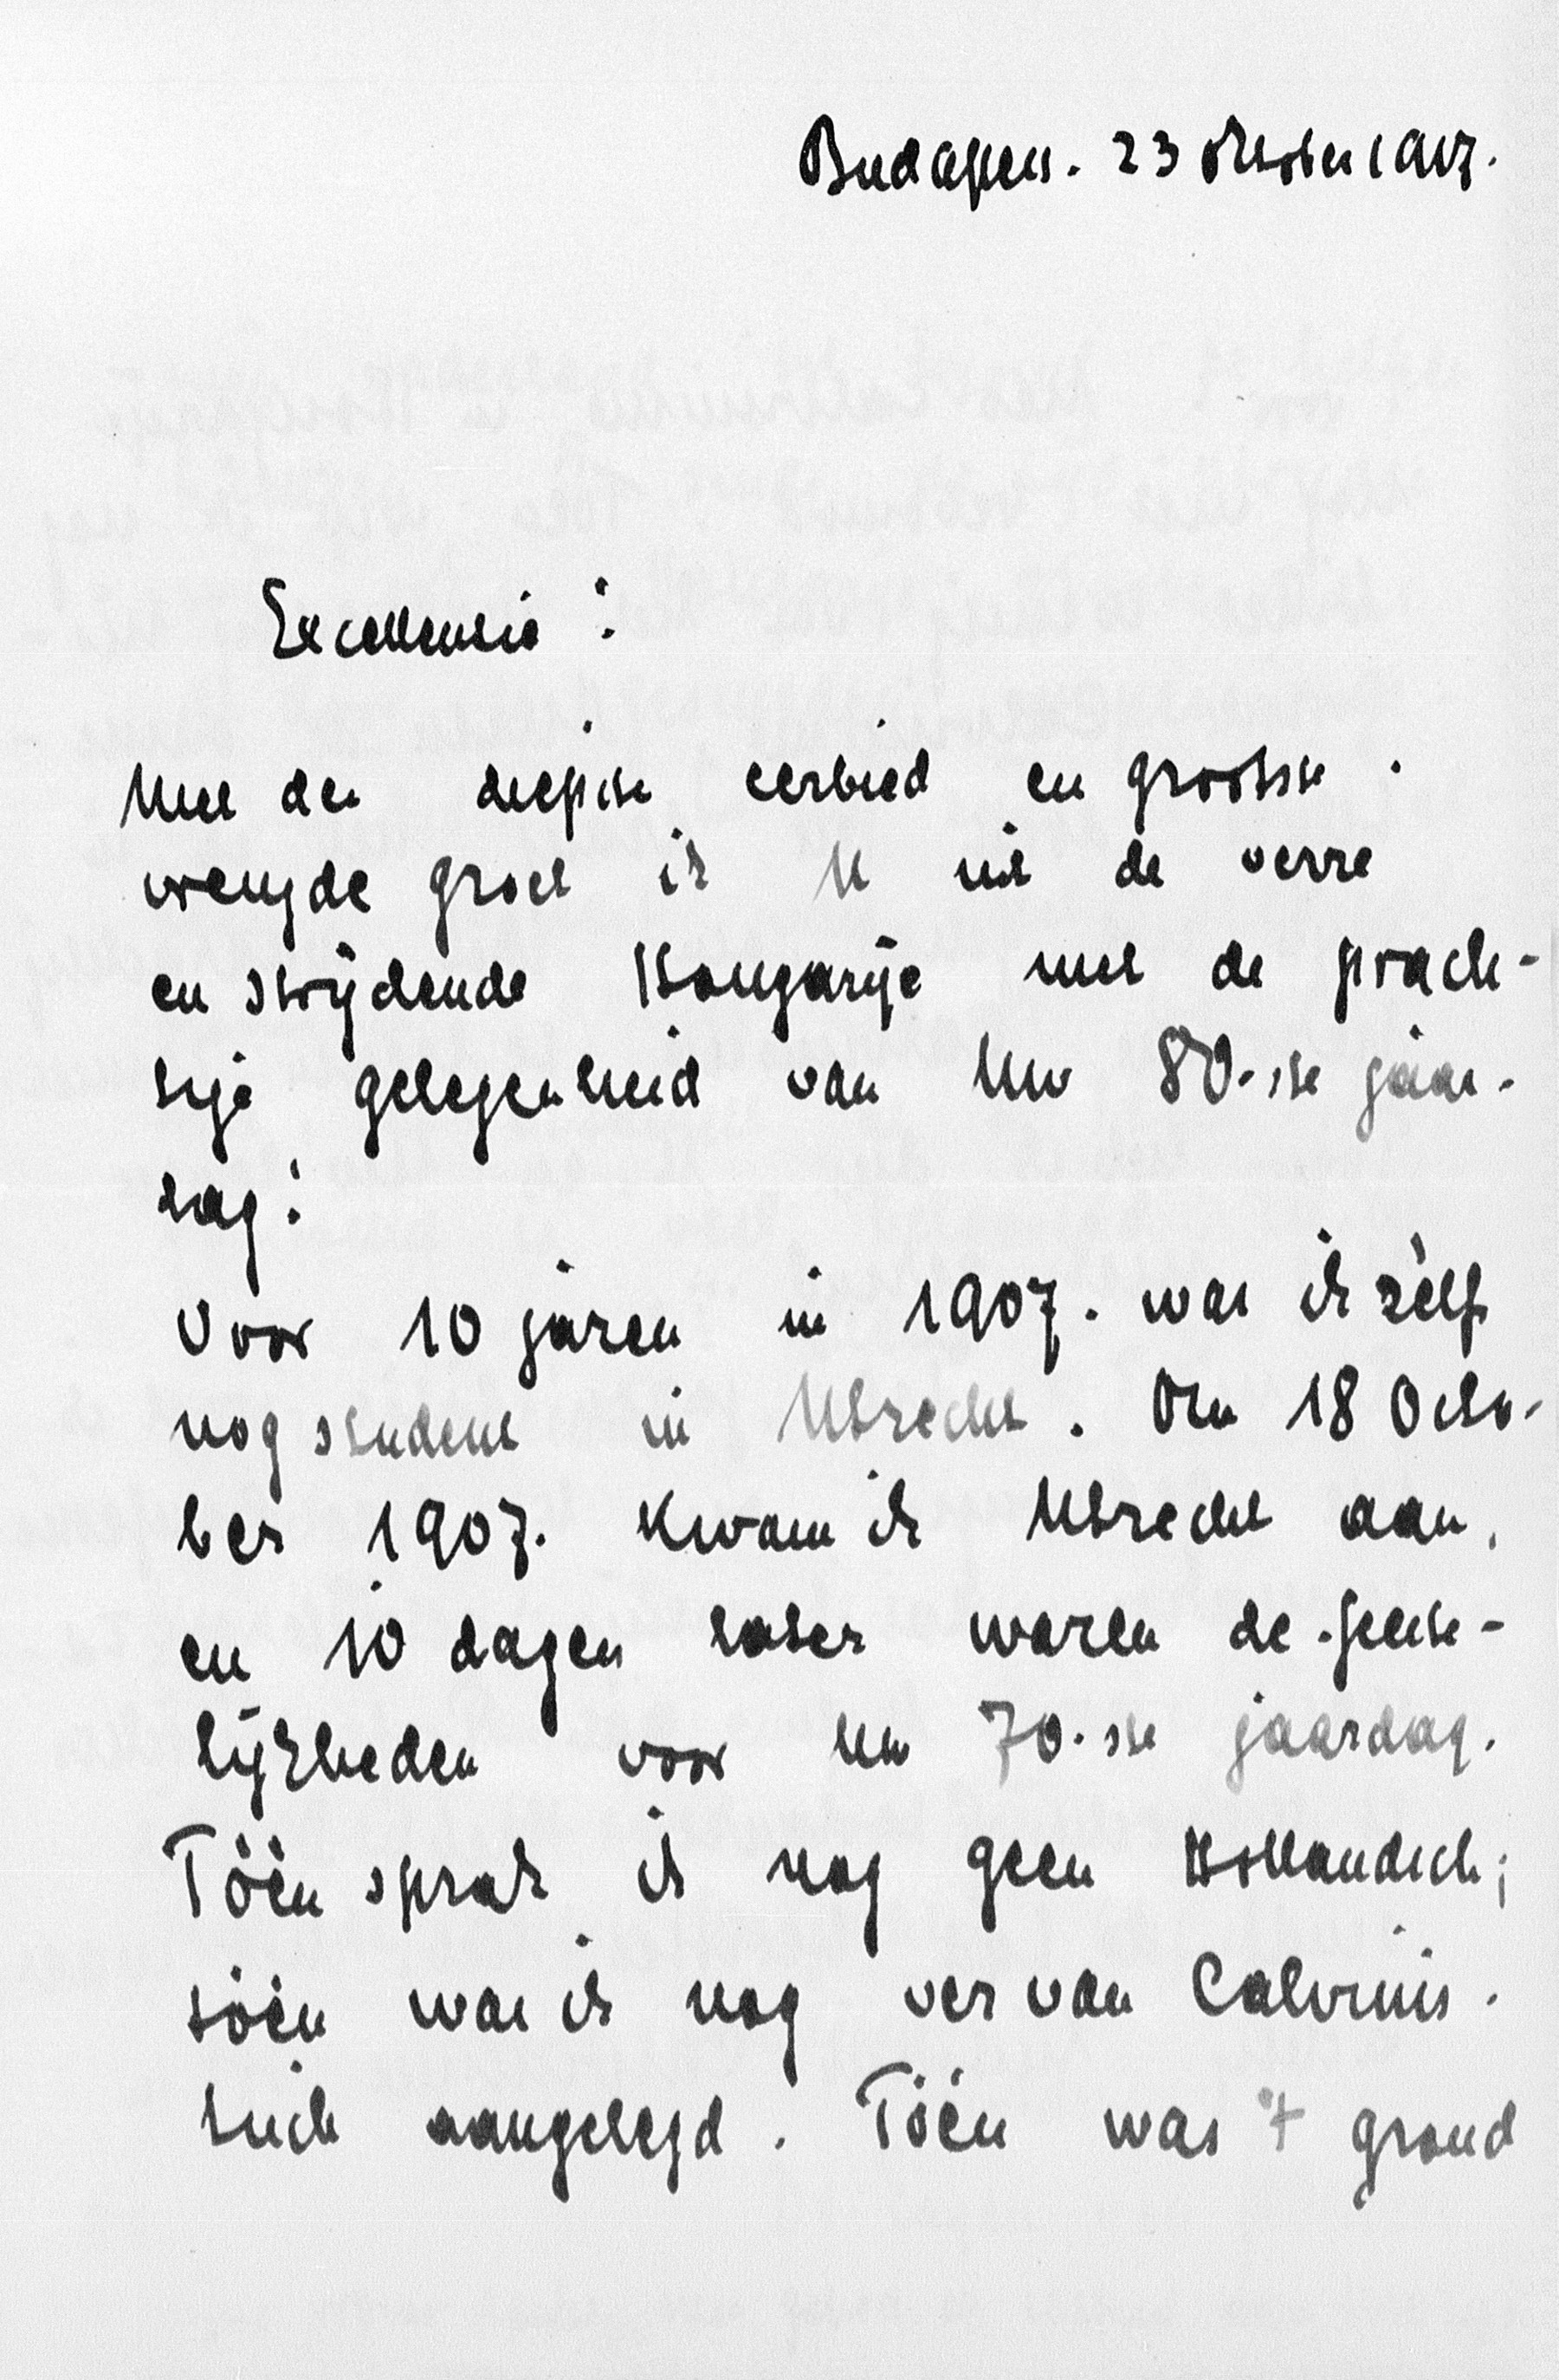 Budapest. 23 October 1917.
Excellentie!
Met den diepste eerbied en grootste
vreugde groet ik U uit de verre
en strijdende Hongarije met de prach-
tige gelegenheid van Uw 80-ste jaar-
tag!
Voor 10 jaren in 1907. was ik zèlf
nog student in Utrecht. Den 18 Octo-
ber 1907. kwam ik Utrecht aan,
en 10 dagen later waren de feeste-
lijkheden voor Uw 70-ste jaardag.
Töèn sprak ik nog geen Hollandsch;
töèn was ik nog ver van Calvinis-
tisch aangelegd. Töèn was 't grond